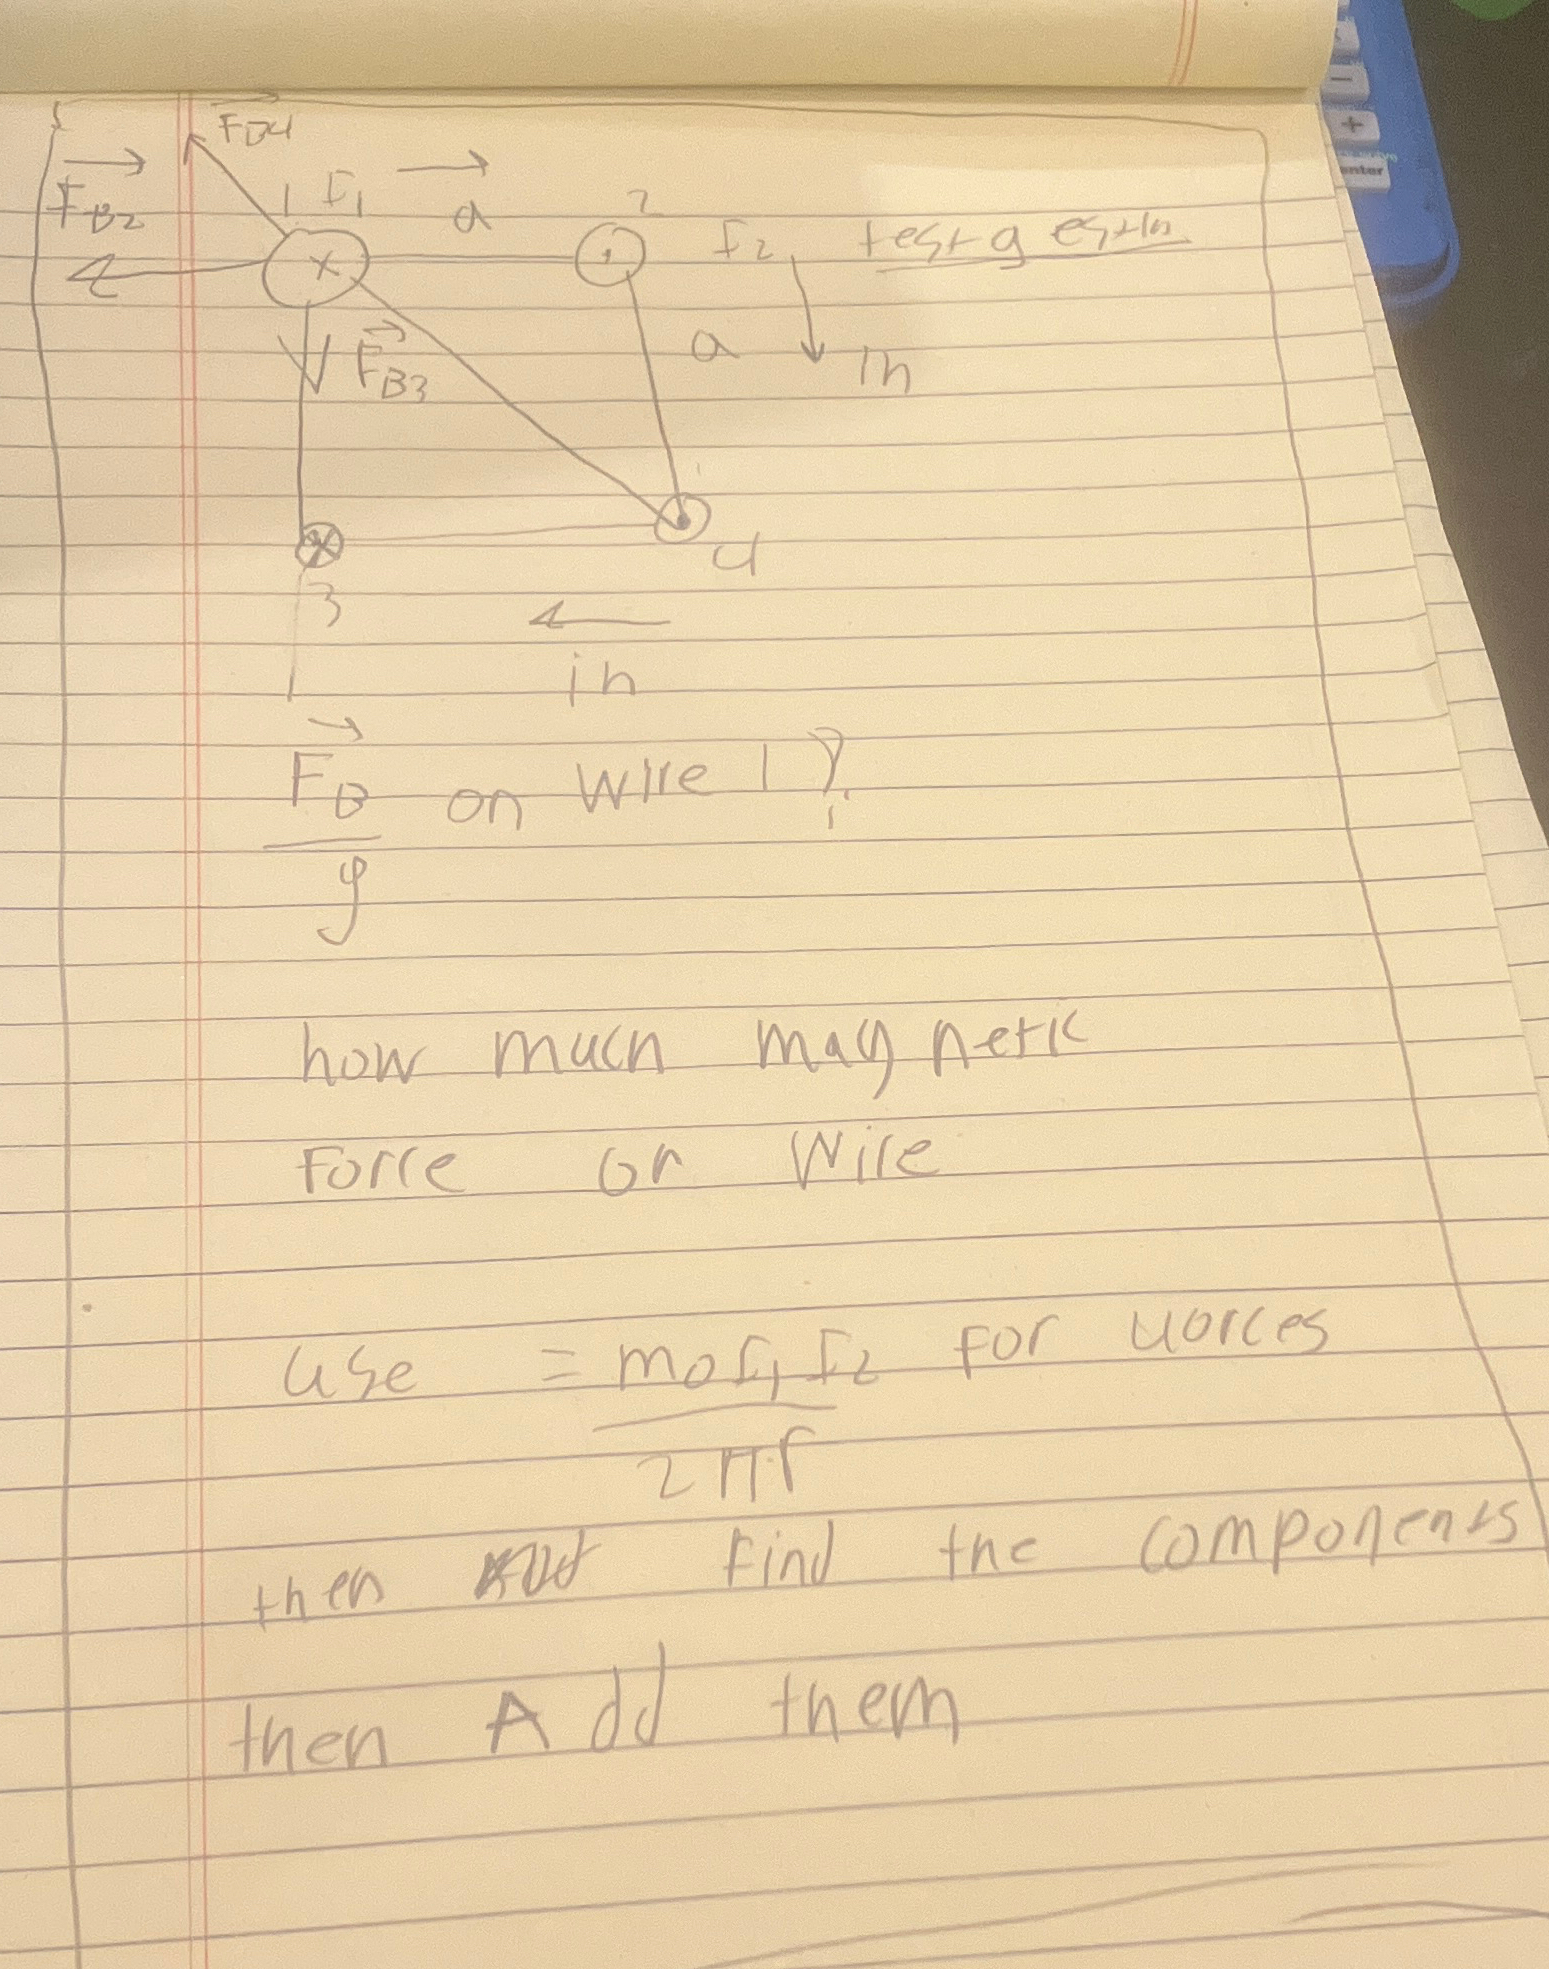 F_B4
F_B2
1 I_1 a 2
I_2 test question
x
F_B3 a in
3 4
in
F_B on wire 1 ?
l
how much magnetic
force on wire
use = moI_1 I_2 for forces
2πr
then find the components
then Add them